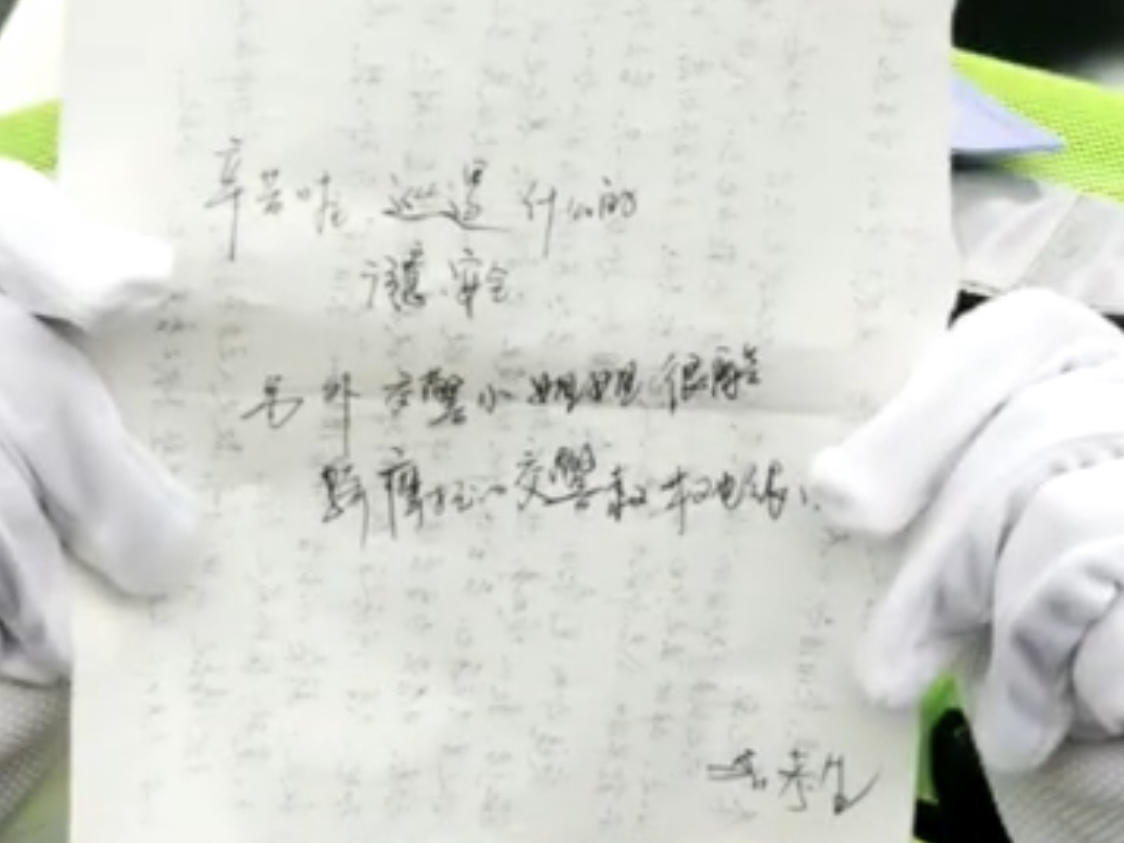 辛苦啦 巡逻什么的
注意安全
另外交警小姐姐很酷
骑摩托的交警叔
考生